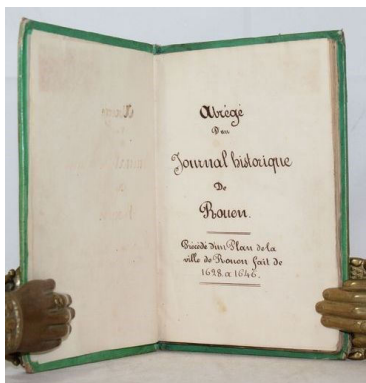 Abrégé
Du
Journal historique
De
Rouen.
Précédé d'un Plan de la
ville de Rouen fait de
1628. a 1646.